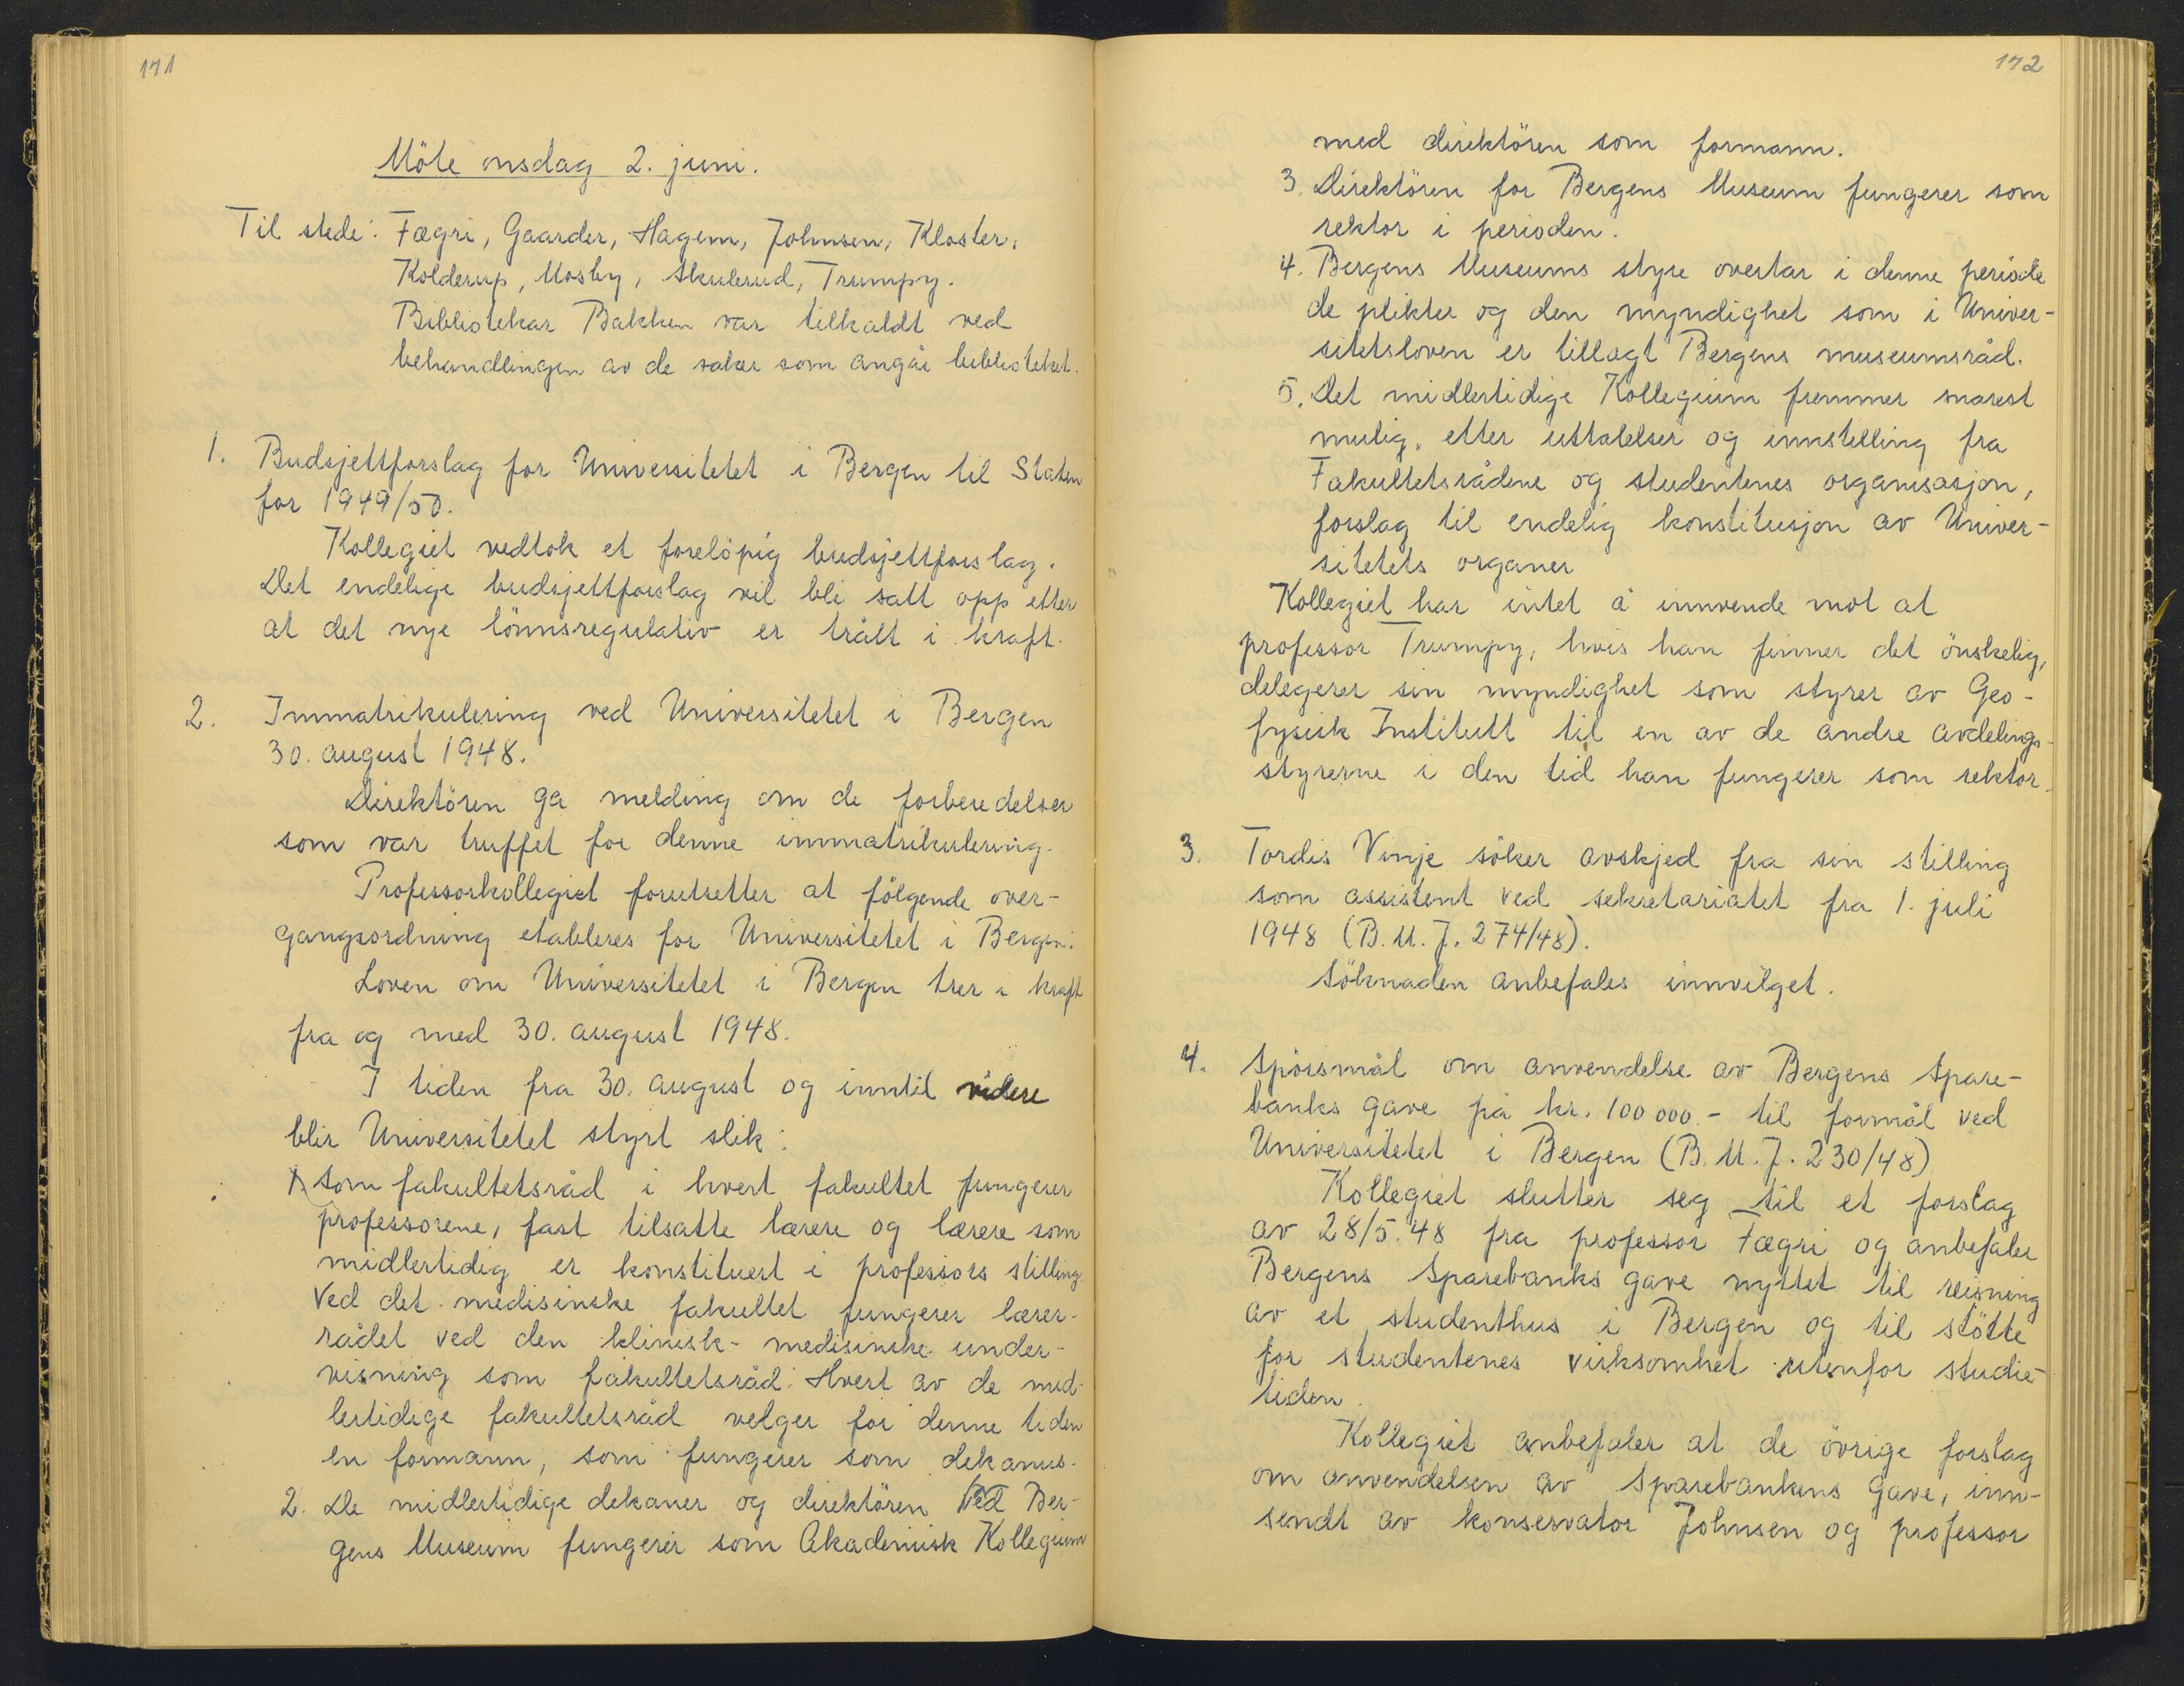 171
Möte onsdag 2. juni.
Til stede: Fægri, Gaarder, Hagem, Johnsen, Kloster,
Kolderup, Mosby, Skulerud, Trumpy.
Bibliotekar Bakken var tilkaldt ved
behandlingen av de saker som angår biblioteket.
1. Budsjettforslag for Universitetet i Bergen til Staten
for 1949/50.
Kollegiet vedtok et forelöpig budsjettforslag.
Det endelige budsjettforslag vil bli satt opp etter
at det nye lönnsregulativ er trått i kraft.
2. Immatrikulering ved Universitetet i Bergen
30. august 1948.
Direktören ga melding om de forberedelser
som var truffet for denne immatrikulering.
Professorkollegiet forutsetter at fölgende over-
gangsordning etableres for Universitetet i Bergen:
Loven om Universitetet i Bergen trer i kraft
fra og med 30. august 1948.
I tiden fra 30. august og inntil videre
blir Universitetet styrt slik:
1. Som fakultetsråd i hvert fakultet fungerer
professorene, fast tilsatte lærere og lærere som
midlertidig er konstituert i professors stilling
Ved det medisinske fakultet fungerer lærer-
rådet ved den klinisk-medisinske under-
visning som fakultetsråd. Hvert av de mid-
lertidige fakultetsråd velger for denne tiden
en formann, som fungerer som dekanus.
2. De midlertidige dekaner og direktören ved Ber-
gens Museum fungerer som Akademisk Kollegium
172
med direktören som formann.
3. Direktören for Bergens Museum fungerer som
rektor i perioden.
4. Bergens Museums styre overtar i denne periode
de plikter og den myndighet som i Univer-
sitetsloven er tillagt Bergens museumsråd.
5. Det midlertidige Kollegium fremmer snarest
mulig, etter uttalelser og innstilling fra
Fakultetsrådene og studentenes organisasjon,
forslag til endelig konstitusjon av Univer-
sitetets organer
Kollegiet har intet å innvende mot at
professor Trumpy, hvis han finner det önskelig,
delegerer sin myndighet som styrer av Geo-
fysisk Institutt til en av de andre avdelings-
styrerne i den tid han fungerer som rektor.
3. Tordis Vinje söker avskjed fra sin stilling
som assistent ved sekretariatet fra 1. juli
1948 (B.M.J. 274/48).
Söknaden anbefales innvilget.
4. Spörsmål om anvendelse av Bergens Spare-
banks gave på kr. 100 000.- til formål ved
Universitetet i Bergen (B.M.J. 230/48)
Kollegiet slutter seg til et forslag
av 28/5.48 fra professor Fægri og anbefaler
Bergens Sparebanks gave nyttet til reisning
av et studenthus i Bergen og til stötte
for studentenes virksomhet utenfor studie-
tiden.
Kollegiet anbefaler at de övrige forslag
om anvendelsen av Sparebankens gave, inn-
sendt av konservator Johnsen og professor